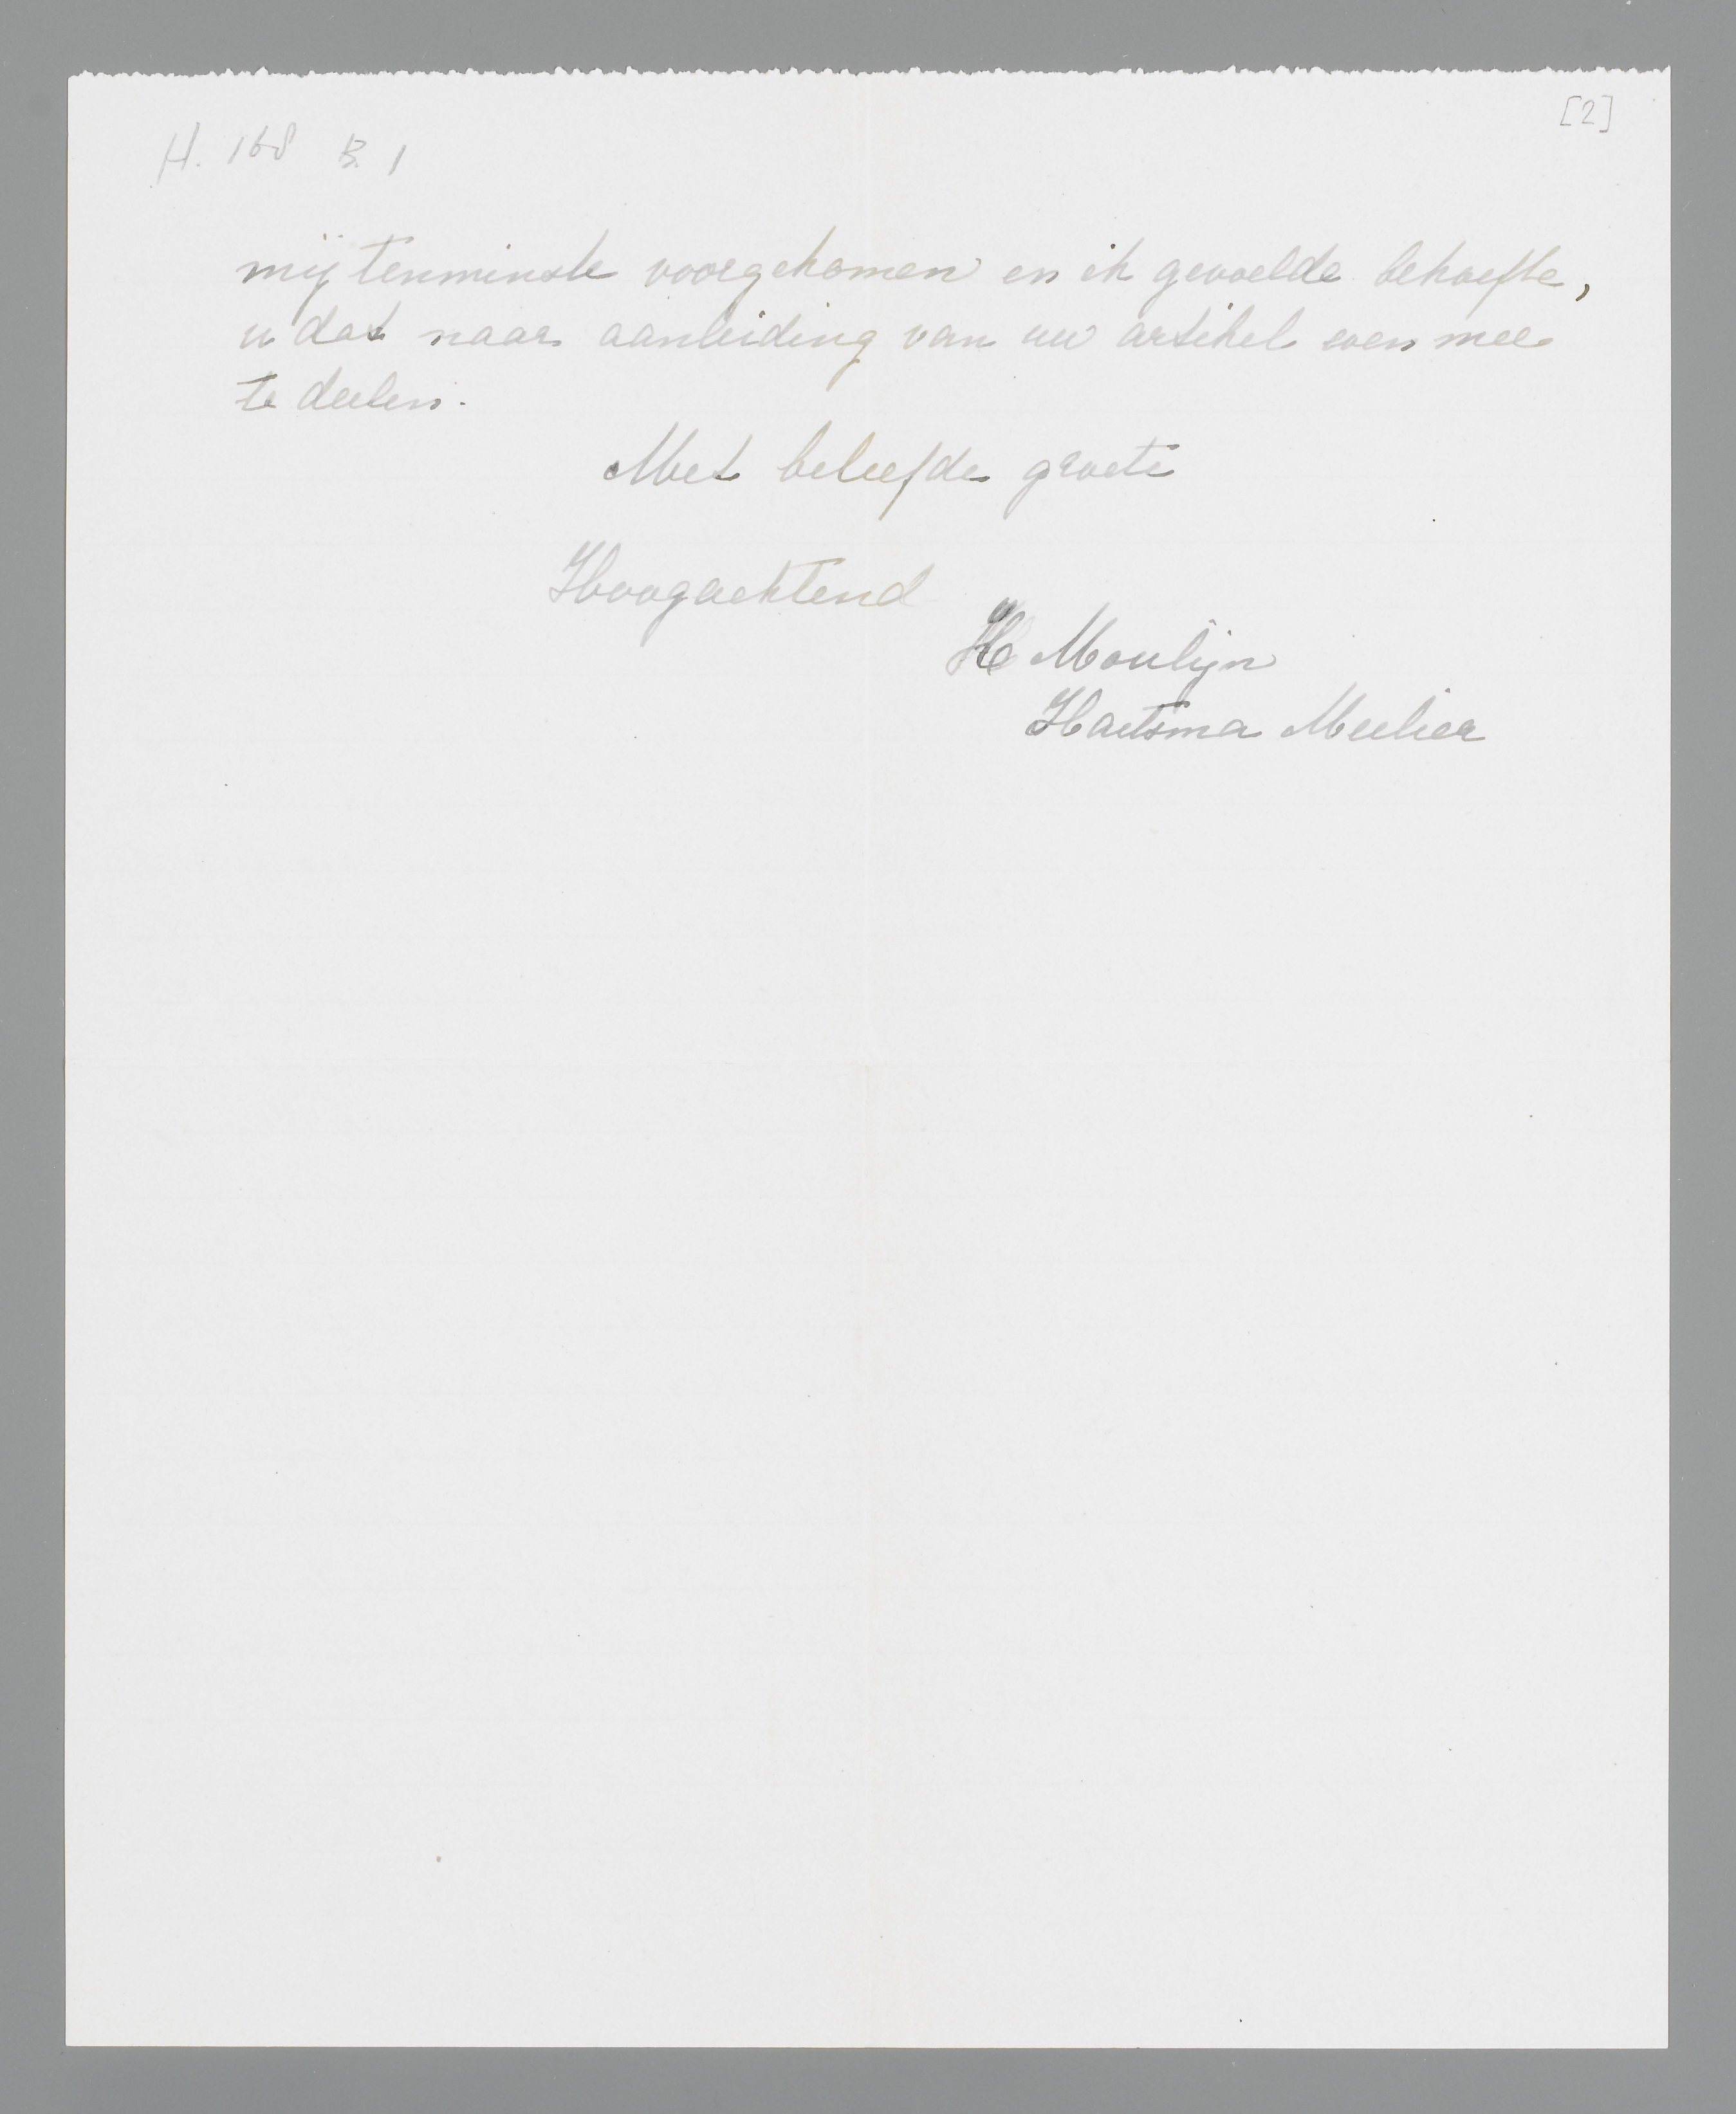 [2]
H. 168 B. 1
mij tenminste voorgekomen en ik gevoelde behoefte,
u dat naar aanleiding van uw artikel even mee
te deelen.
Met beleefde groete
Hoogachtend
H Moulijn
Haitsma Mulier